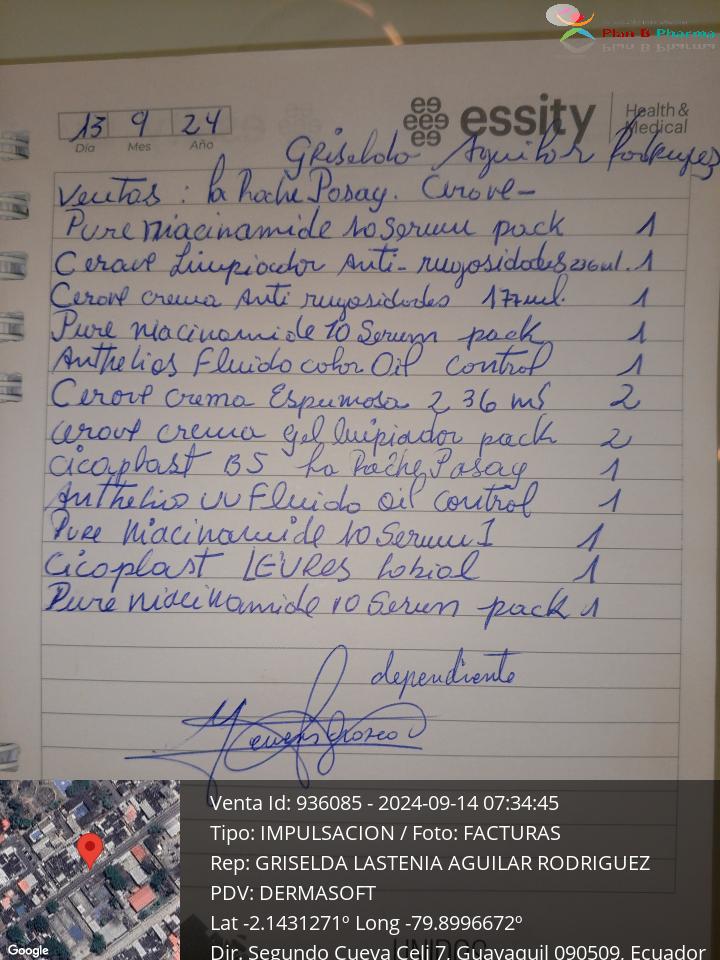 Plan B Pharma
13 9 24
Día Mes Año
essity Health & Medical
Griselda Aguilar Rodriguez
Ventas : La Roche Posay. Cerave -
Pure niacinamide 10 Serum pack 1
Cerave Limpiador Anti-rugosidades 236ml. 1
Cerave crema Anti rugosidades 177ml. 1
Pure niacinamide 10 Serum pack 1
Anthelios Fluido color Oil control 1
Cerave crema Espumosa 236 ml 2
Cerave crema gel limpiador pack 2
Cicaplast B5 La Roche Posay 1
Anthelios UV Fluido oil control 1
Pure Niacinamide 10 Serum 1 1
Cicaplast LEVRES Labial 1
Pure niacinamide 10 Serum pack 1
dependiente
Venta Id: 936085 - 2024-09-14 07:34:45
Tipo: IMPULSACION / Foto: FACTURAS
Rep: GRISELDA LASTENIA AGUILAR RODRIGUEZ
PDV: DERMASOFT
Lat -2.1431271º Long -79.8996672º
Dir. Segundo Cueva Celi 7, Guayaquil 090509, Ecuador
Google